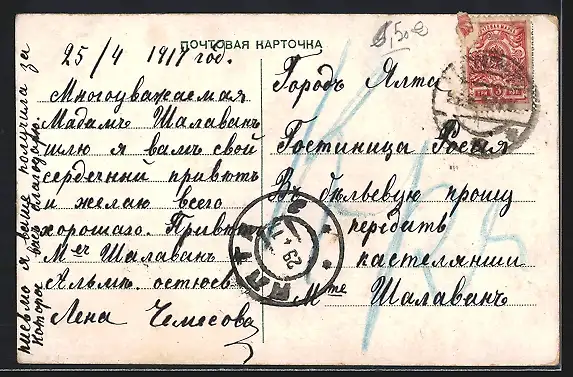 ПОЧТОВАЯ КАРТОЧКА
25/4 1917 год.
Многоуважаемая
Мадамъ Шалаванъ
шлю я вамъ свой
сердечный привютъ
и желаю всего
хорошаго. Привютъ
Шалаванъ
остюсь
Лена Чемесова
письмо я ваше получила за
Которае васъ благодарю.
Городъ Ялта
Гостиница Росия
Въ бѣльевую прошу
передать
кастелянши
Мте Шалаванъ
ЯЛТА
29 4